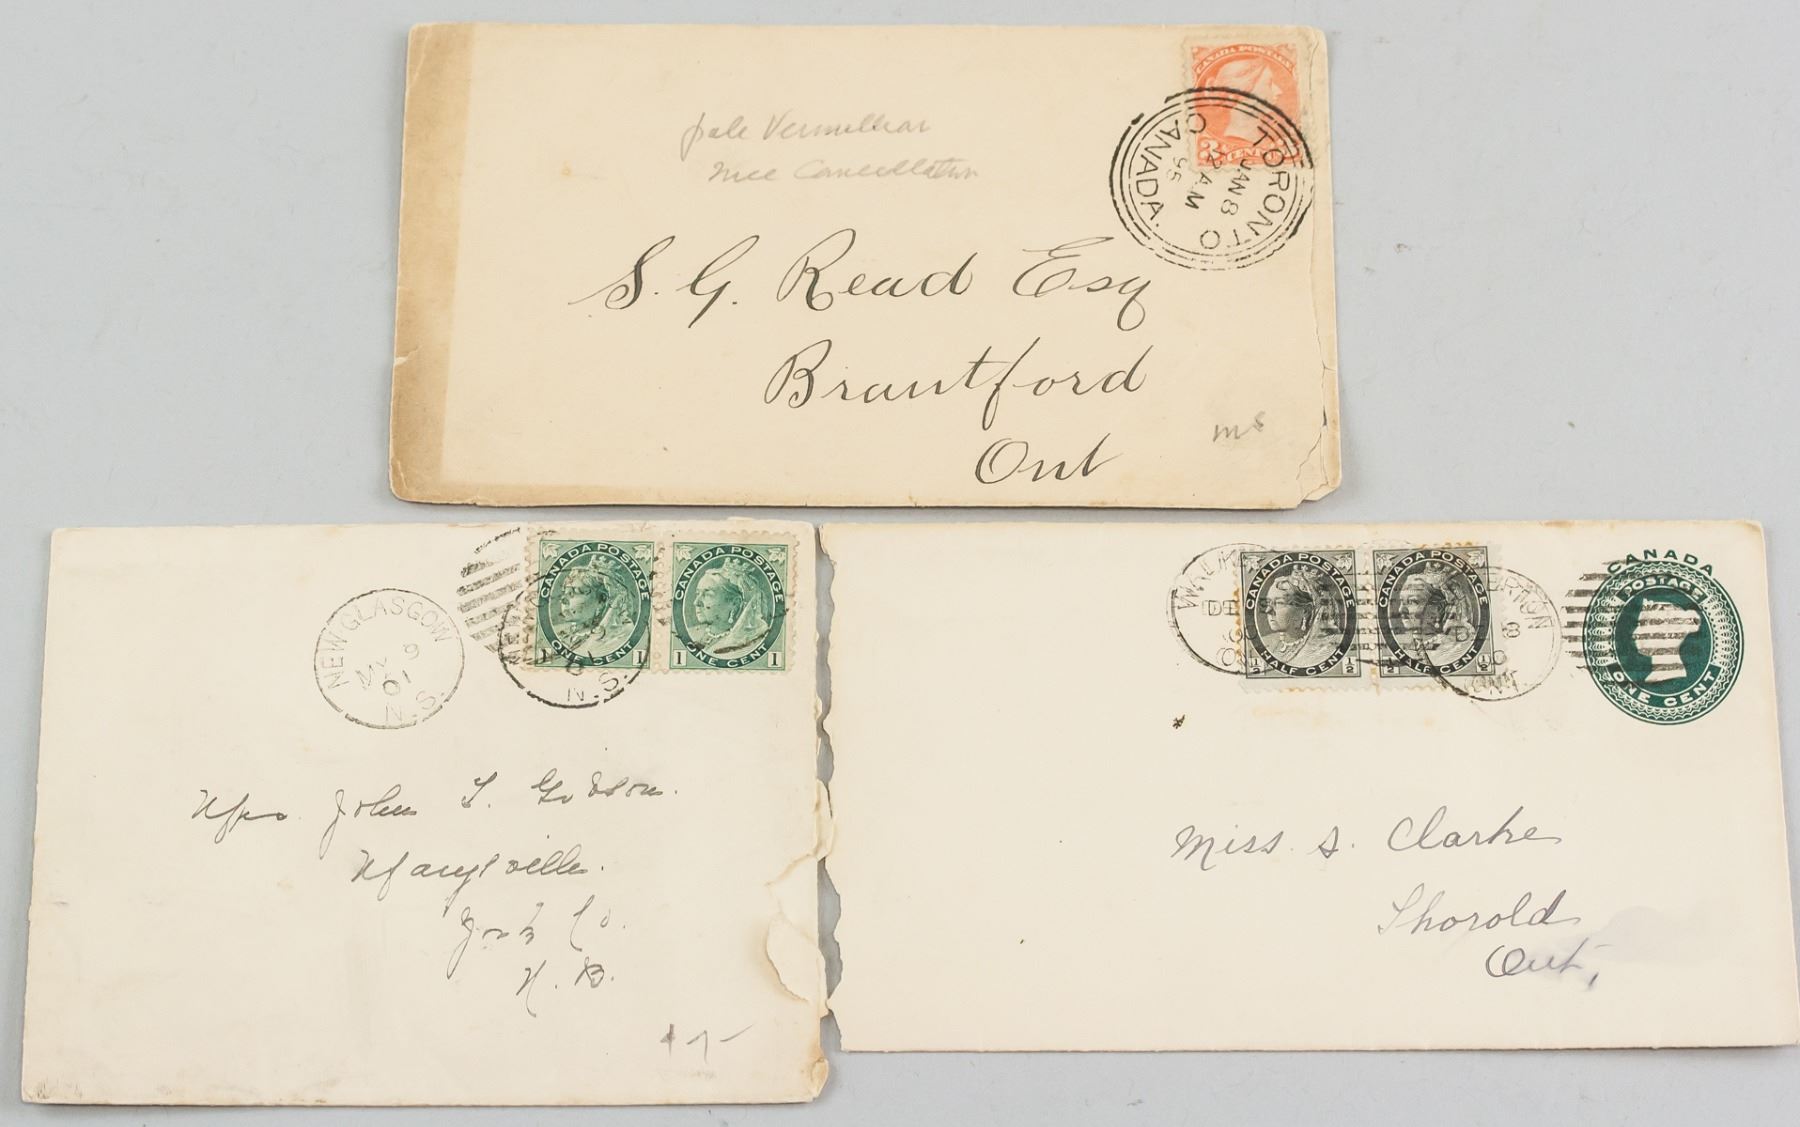 CANADA POSTAGE
3 CENTS
TORONTO
JAN 8
12 AM
95
CANADA.
pale Vermillion
nice Cancellation
S. G. Read Esq
Brantford
Ont
ms
CANADA POSTAGE
1 ONE CENT 1
CANADA POSTAGE
1 ONE CENT 1
NEW GLASGOW
9
01
N.S.
N.S.
Mrs. John T. Gibson.
Marysville.
York Co.
N. B.
CANADA POSTAGE
1/2 HALF CENT 1/2
CANADA POSTAGE
1/2 HALF CENT 1/2
CANADA
POSTAGE
ONE CENT
ONT.
Miss. S. Clarke
Thorold
Ont,